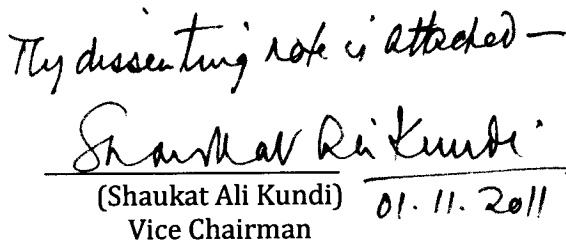 My dissenting note is attached —
Shaukat Ali Kundi
(Shaukat Ali Kundi) 01.11.2011
Vice Chairman